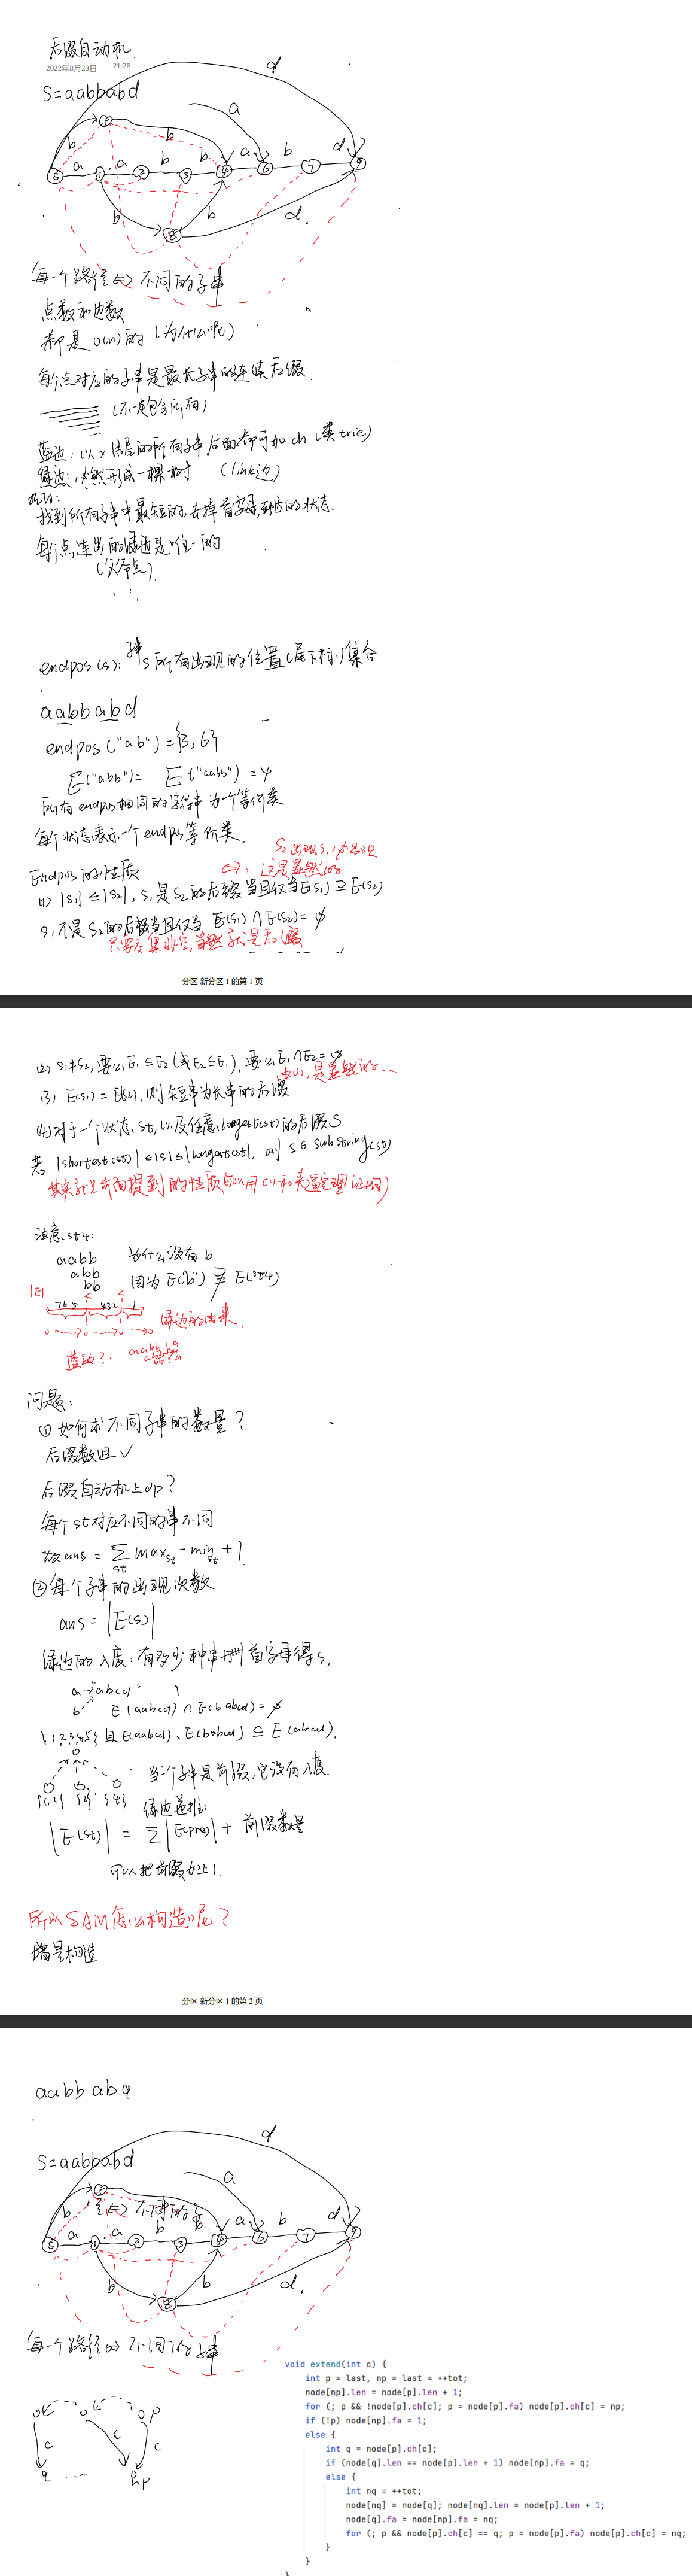 后缀自动机
2022年8月23日 21:28
S=aabbabd
每一个路径<=>不同的子串
点数和边数
都是O(n)的(为什么呢)
每个点对应的子串是最长子串的连续后缀.
(不一定包含所有)
蓝边:以x结尾的所有子串后面都可加ch(类trie)
绿边:必然形成一棵树 (link边)
找到所有子串中最短的,去掉首字母,到达的状态.
每个点连出的绿边是唯一的
(父节点).
endpos(s): 子串s所有出现的位置(尾下标)集合
aabbabd
endpos("ab")={3,6}
E("abb")= E("aabb")=4
所有endpos相同的字符串为一个等价类
每个状态表示一个endpos等价类.
Endpos的性质
S2出现S1必出现
<=>: 这是显然的
(1) |S1|≤|S2|, S1是S2的后缀当且仅当E(S1)⊇E(S2)
S1不是S2的后缀当且仅当 E(S1)∩E(S2)=φ
只要交集非空,当然就是后缀
分区 新分区 1 的第 1 页
(2) S1≠S2,要么E1⊆E2(或E2⊆E1),要么E1∩E2=φ
由(1),是显然的...
(3) E(S1)=E(S2),则短串为长串的后缀
(4)对于一个状态st,以及任意longest(st)的后缀S
若|shortest(st)|≤|S|≤|longest(st)|, 则 S∈Substring(st)
注意st4:
aabb 为什么没有b
abb
bb 因为E("b")⊋E(st4)
|E|
765 432 1
绿边的由来.
蓝边?:
问题:
① 如何求不同子串的数量?
后缀数组✓
后缀自动机上dp?
每个st对应不同的串不同
故ans = ∑ max st - min st + 1
st
②每个子串的出现次数
ans = |E(s)|
绿边的入度:有多少种串删首字母得s,
a→abcd
b E(aabcd)∩E(babcd)=φ
且E(aabcd)、E(babcd)⊆E(abcd).
当一个子串是前缀,它没有入度.
绿边递推:
|E(st)| = ∑|E(pre)| + 前缀数量
可以把前缀加上1.
所以SAM怎么构造呢?
增量构造
分区 新分区 1 的第 2 页
aabbaba
S=aabbabd
每一个路径<=>不同的子串
void extend(int c) {
int p = last, np = last = ++tot;
node[np].len = node[p].len + 1;
for (; p && !node[p].ch[c]; p = node[p].fa) node[p].ch[c] = np;
if (!p) node[np].fa = 1;
else {
int q = node[p].ch[c];
if (node[q].len == node[p].len + 1) node[np].fa = q;
else {
int nq = ++tot;
node[nq] = node[q]; node[nq].len = node[p].len + 1;
node[q].fa = node[np].fa = nq;
for (; p && node[p].ch[c] == q; p = node[p].fa) node[p].ch[c] = nq;
}
}
}